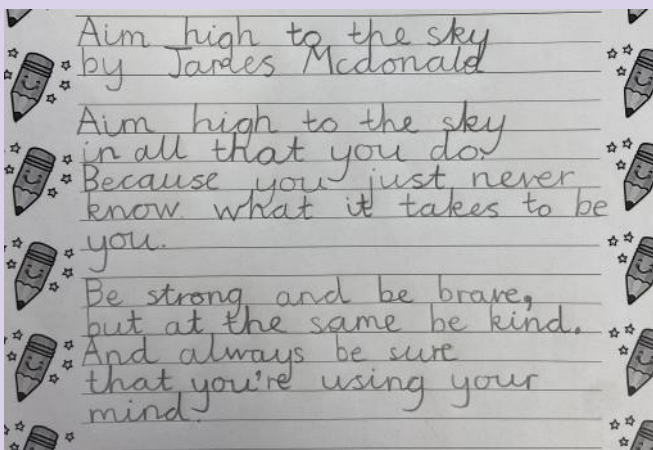 Aim high to the sky
by Jardes Mcdonald
Aim high to the sky
in all that you do.
Because you just never
know what it takes to be
you.
Be strong and be brave,
but at the same be kind.
And always be sure
that you're using your
mind.